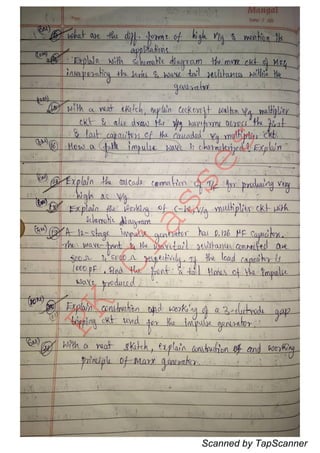 Mangal
(8M) What are the diff. forms of high v/g & mention its
applications
(10M) Explain with schematic diagram the marx ckt of MIG
incorporating the series & wave tail resistances within the
generator
(10M) With a neat sketch, explain Cockcroft walton v/g multiplier
ckt & also draw the v/g waveforms across the first
& last capacitors of the cascaded v/g multiplier ckt.
How a full impulse wave is characterized Explain
Explain the cascade connection of T/f for producing very
high ac v/g
Explain the working of v/g multiplier ckt with
schematic diagram
A 12-stage impulse generator has 0.126 µF capacitors.
The wave front & the wave tail resistances connected are
800 Ω & 5000 Ω respectively. If the load capacitor is
1000 pF. Find the front & tail times of the impulse
wave produced.
(10M) Explain construction and working of a 3-electrode gap
tripping ckt used for the impulse generator.
(8M) With a neat sketch, explain construction and working
principle of Marx generator.
Scanned by TapScanner